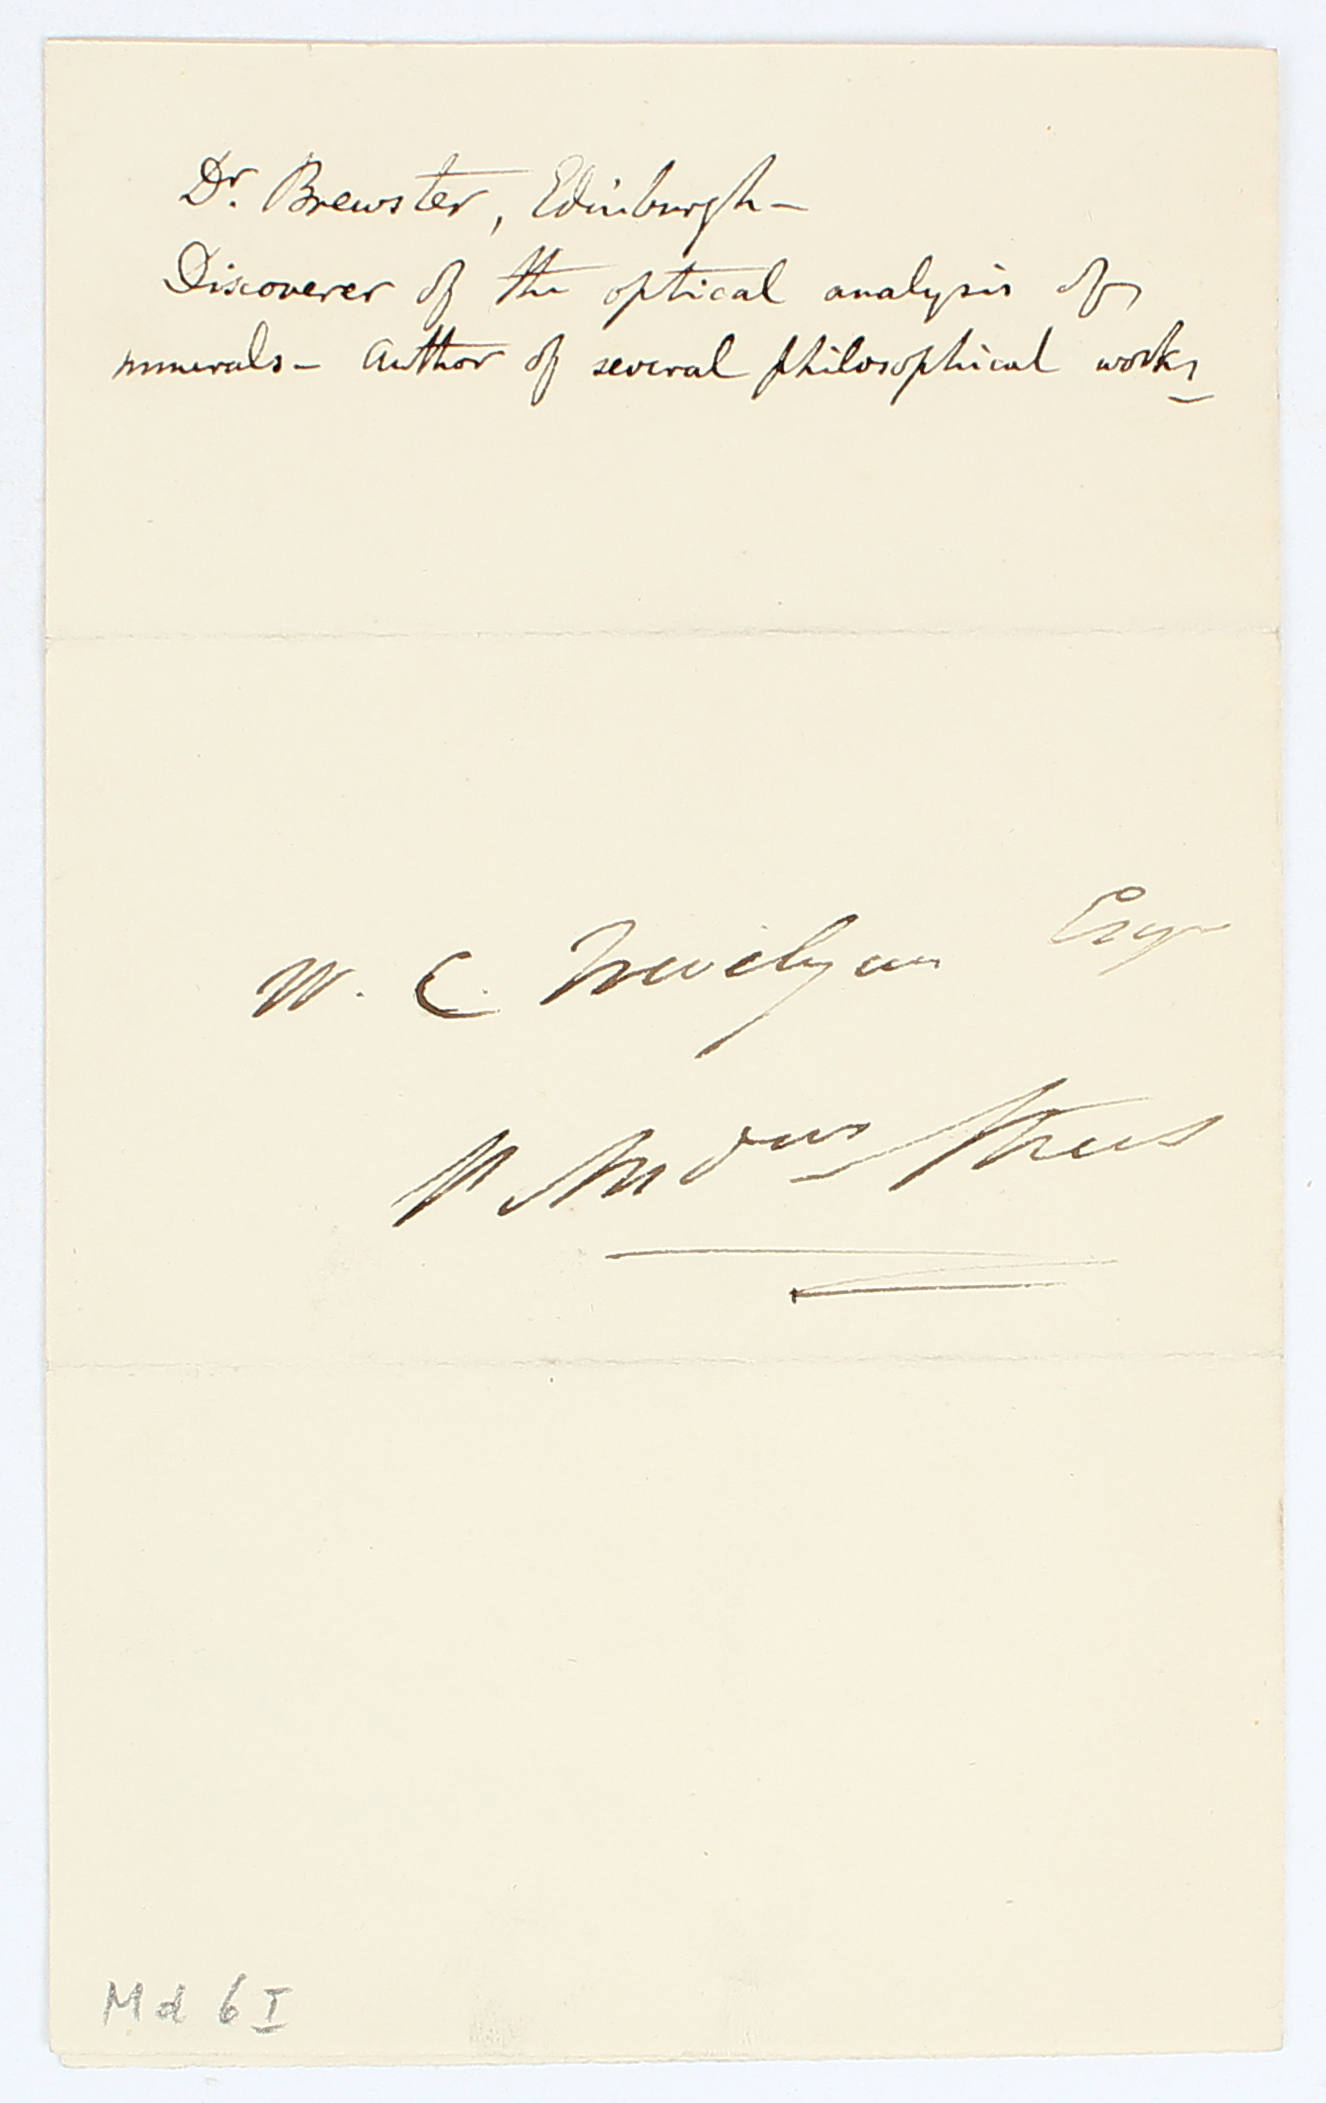 Dr. Brewster, Edinburgh—
Discoverer of the optical analysis of
minerals— author of several philosophical works
W. C. Trevelyan Esqr
St Andrews Street
Md 6 I